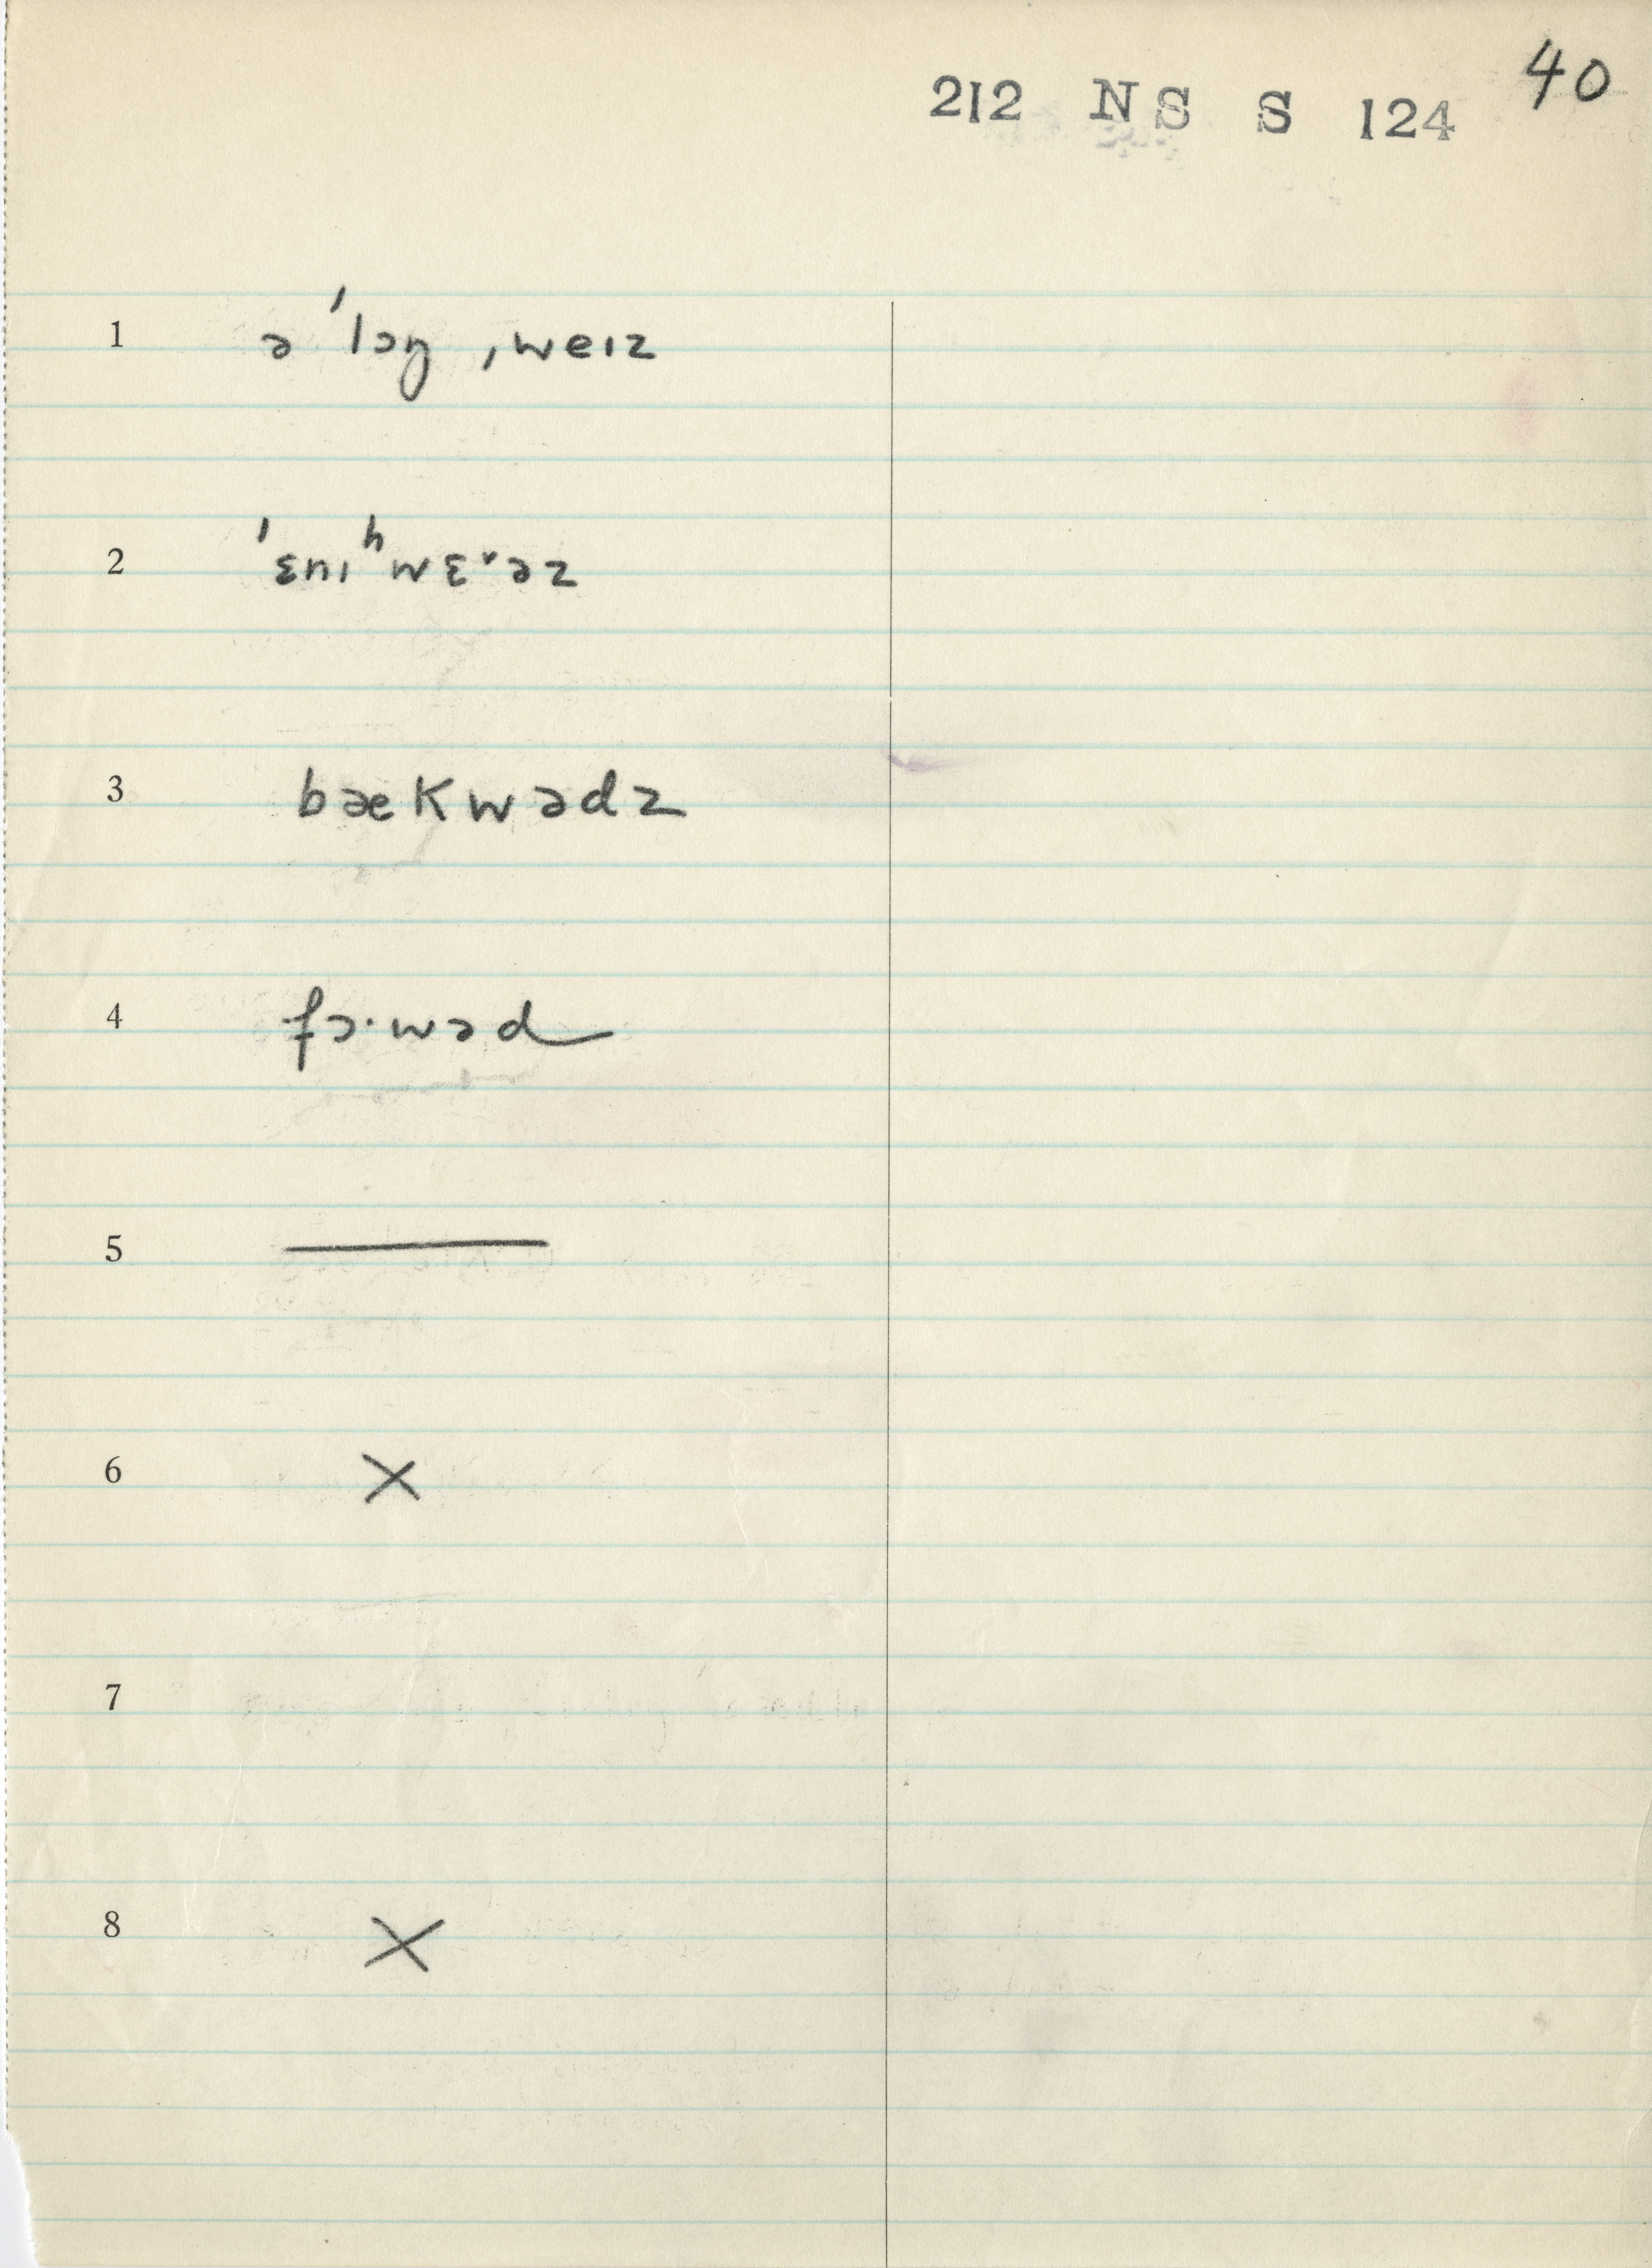 212 NS S 124 40
1 ə ˈlɔŋ ˌweɪz
2 ˈɛnɪʰwɛ˅əz
3 bækwədz
4 fɔ·wəd
5 —
6 X
7
8 X